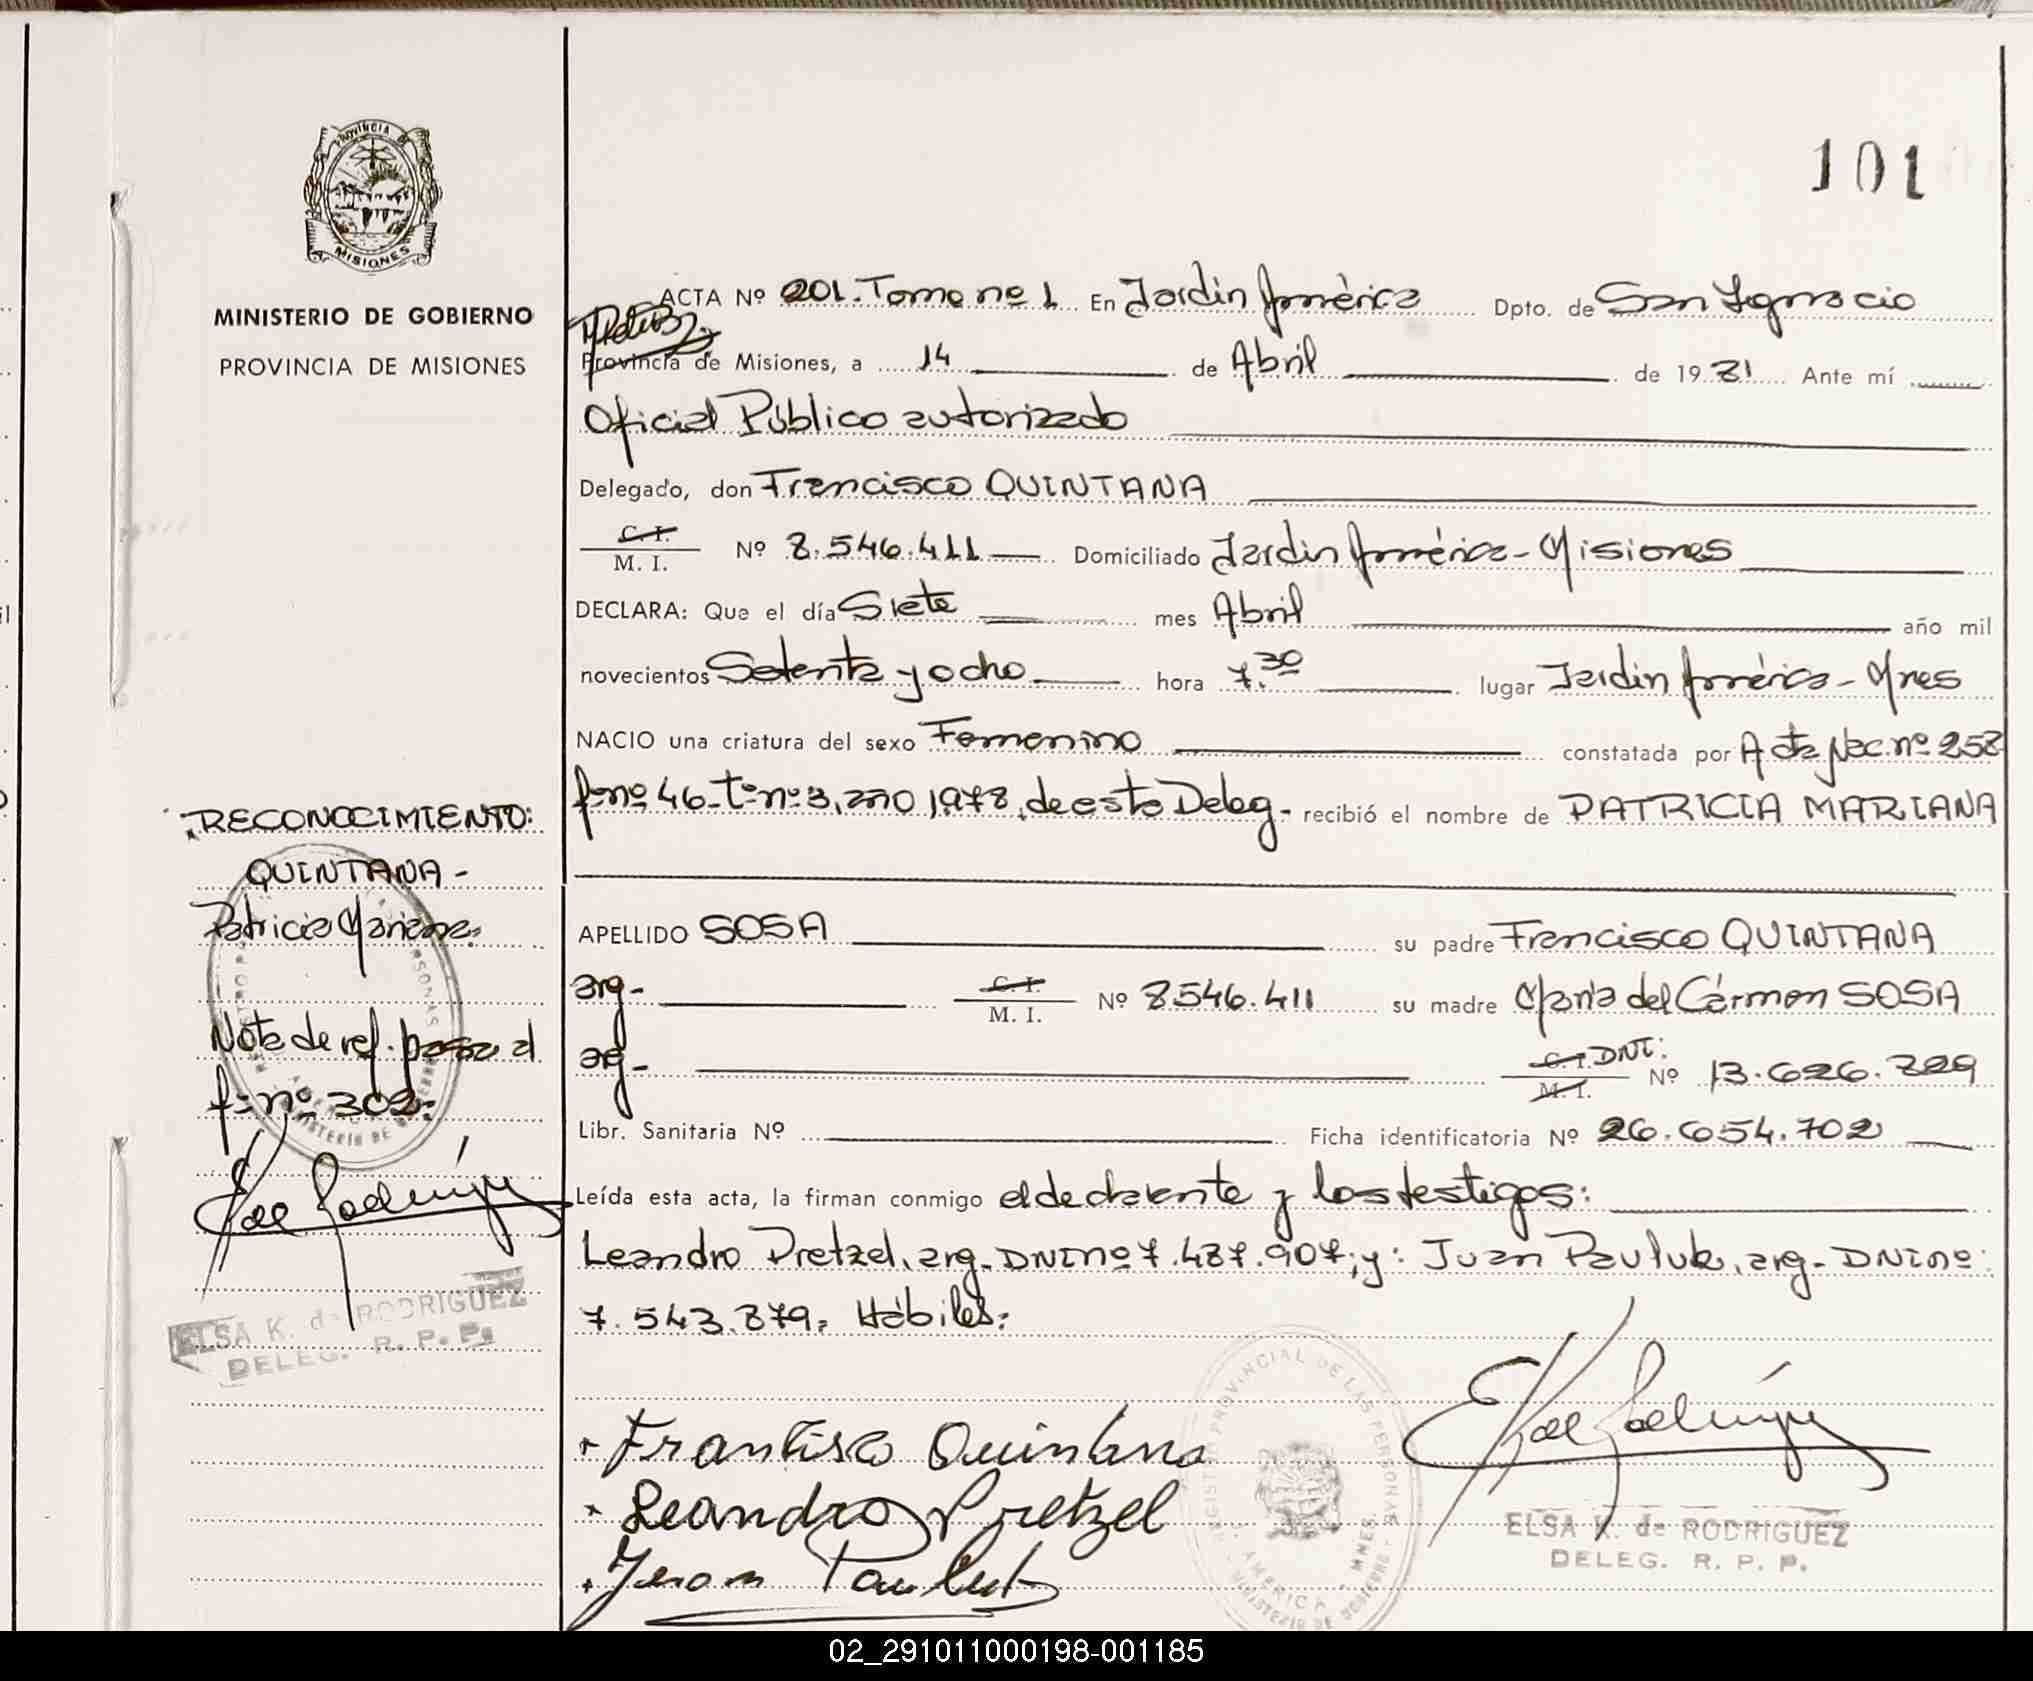 PROVINCIA DE
MISIONES
MINISTERIO DE GOBIERNO
PROVINCIA DE MISIONES
101
ACTA Nº 201. Tomo nº 1 En Jardín América Dpto. de San Ignacio
Provincia de Misiones, a 14 de Abril de 1981 Ante mí
Oficial Público autorizado
Delegado, don Francisco QUINTANA
C. I.
M. I. Nº 8.546.411 Domiciliado Jardín América - Misiones
DECLARA: Que el día Siete mes Abril año mil
novecientos Setenta y ocho hora 7.30 lugar Jardín América - Mnes
NACIO una criatura del sexo Femenino constatada por Acta Nac. nº 258
fº nº 46 - tº nº 3, año 1978, de esta Deleg- recibió el nombre de PATRICIA MARIANA
APELLIDO SOSA su padre Francisco QUINTANA
arg- C. I.
M. I. Nº 8546.411 su madre María del Cármen SOSA
arg- C. I. DNI:
M. I. Nº 13.626.829
Libr. Sanitaria Nº Ficha identificatoria Nº 26.654.702
Leída esta acta, la firman conmigo el declarante y los testigos:
Leandro Pretzel, arg- DNI nº 7.487.907, y: Juan Pauluk, arg- DNI nº:
7.543.879, Hábiles:
RECONOCIMIENTO:
QUINTANA -
Patricia Mariana.
Nota de ref. pasa al
fº nº 302:
ELSA K. de RODRIGUEZ
DELEG. R. P. P.
Francisco Quintana
Leandro Pretzel
Juan Pauluk
REGISTRO PROVINCIAL DE LAS PERSONAS
AMERICA - MNES.
MINISTERIO DE GOBIERNO
ELSA K. de RODRIGUEZ
DELEG. R. P. P.
02_291011000198-001185